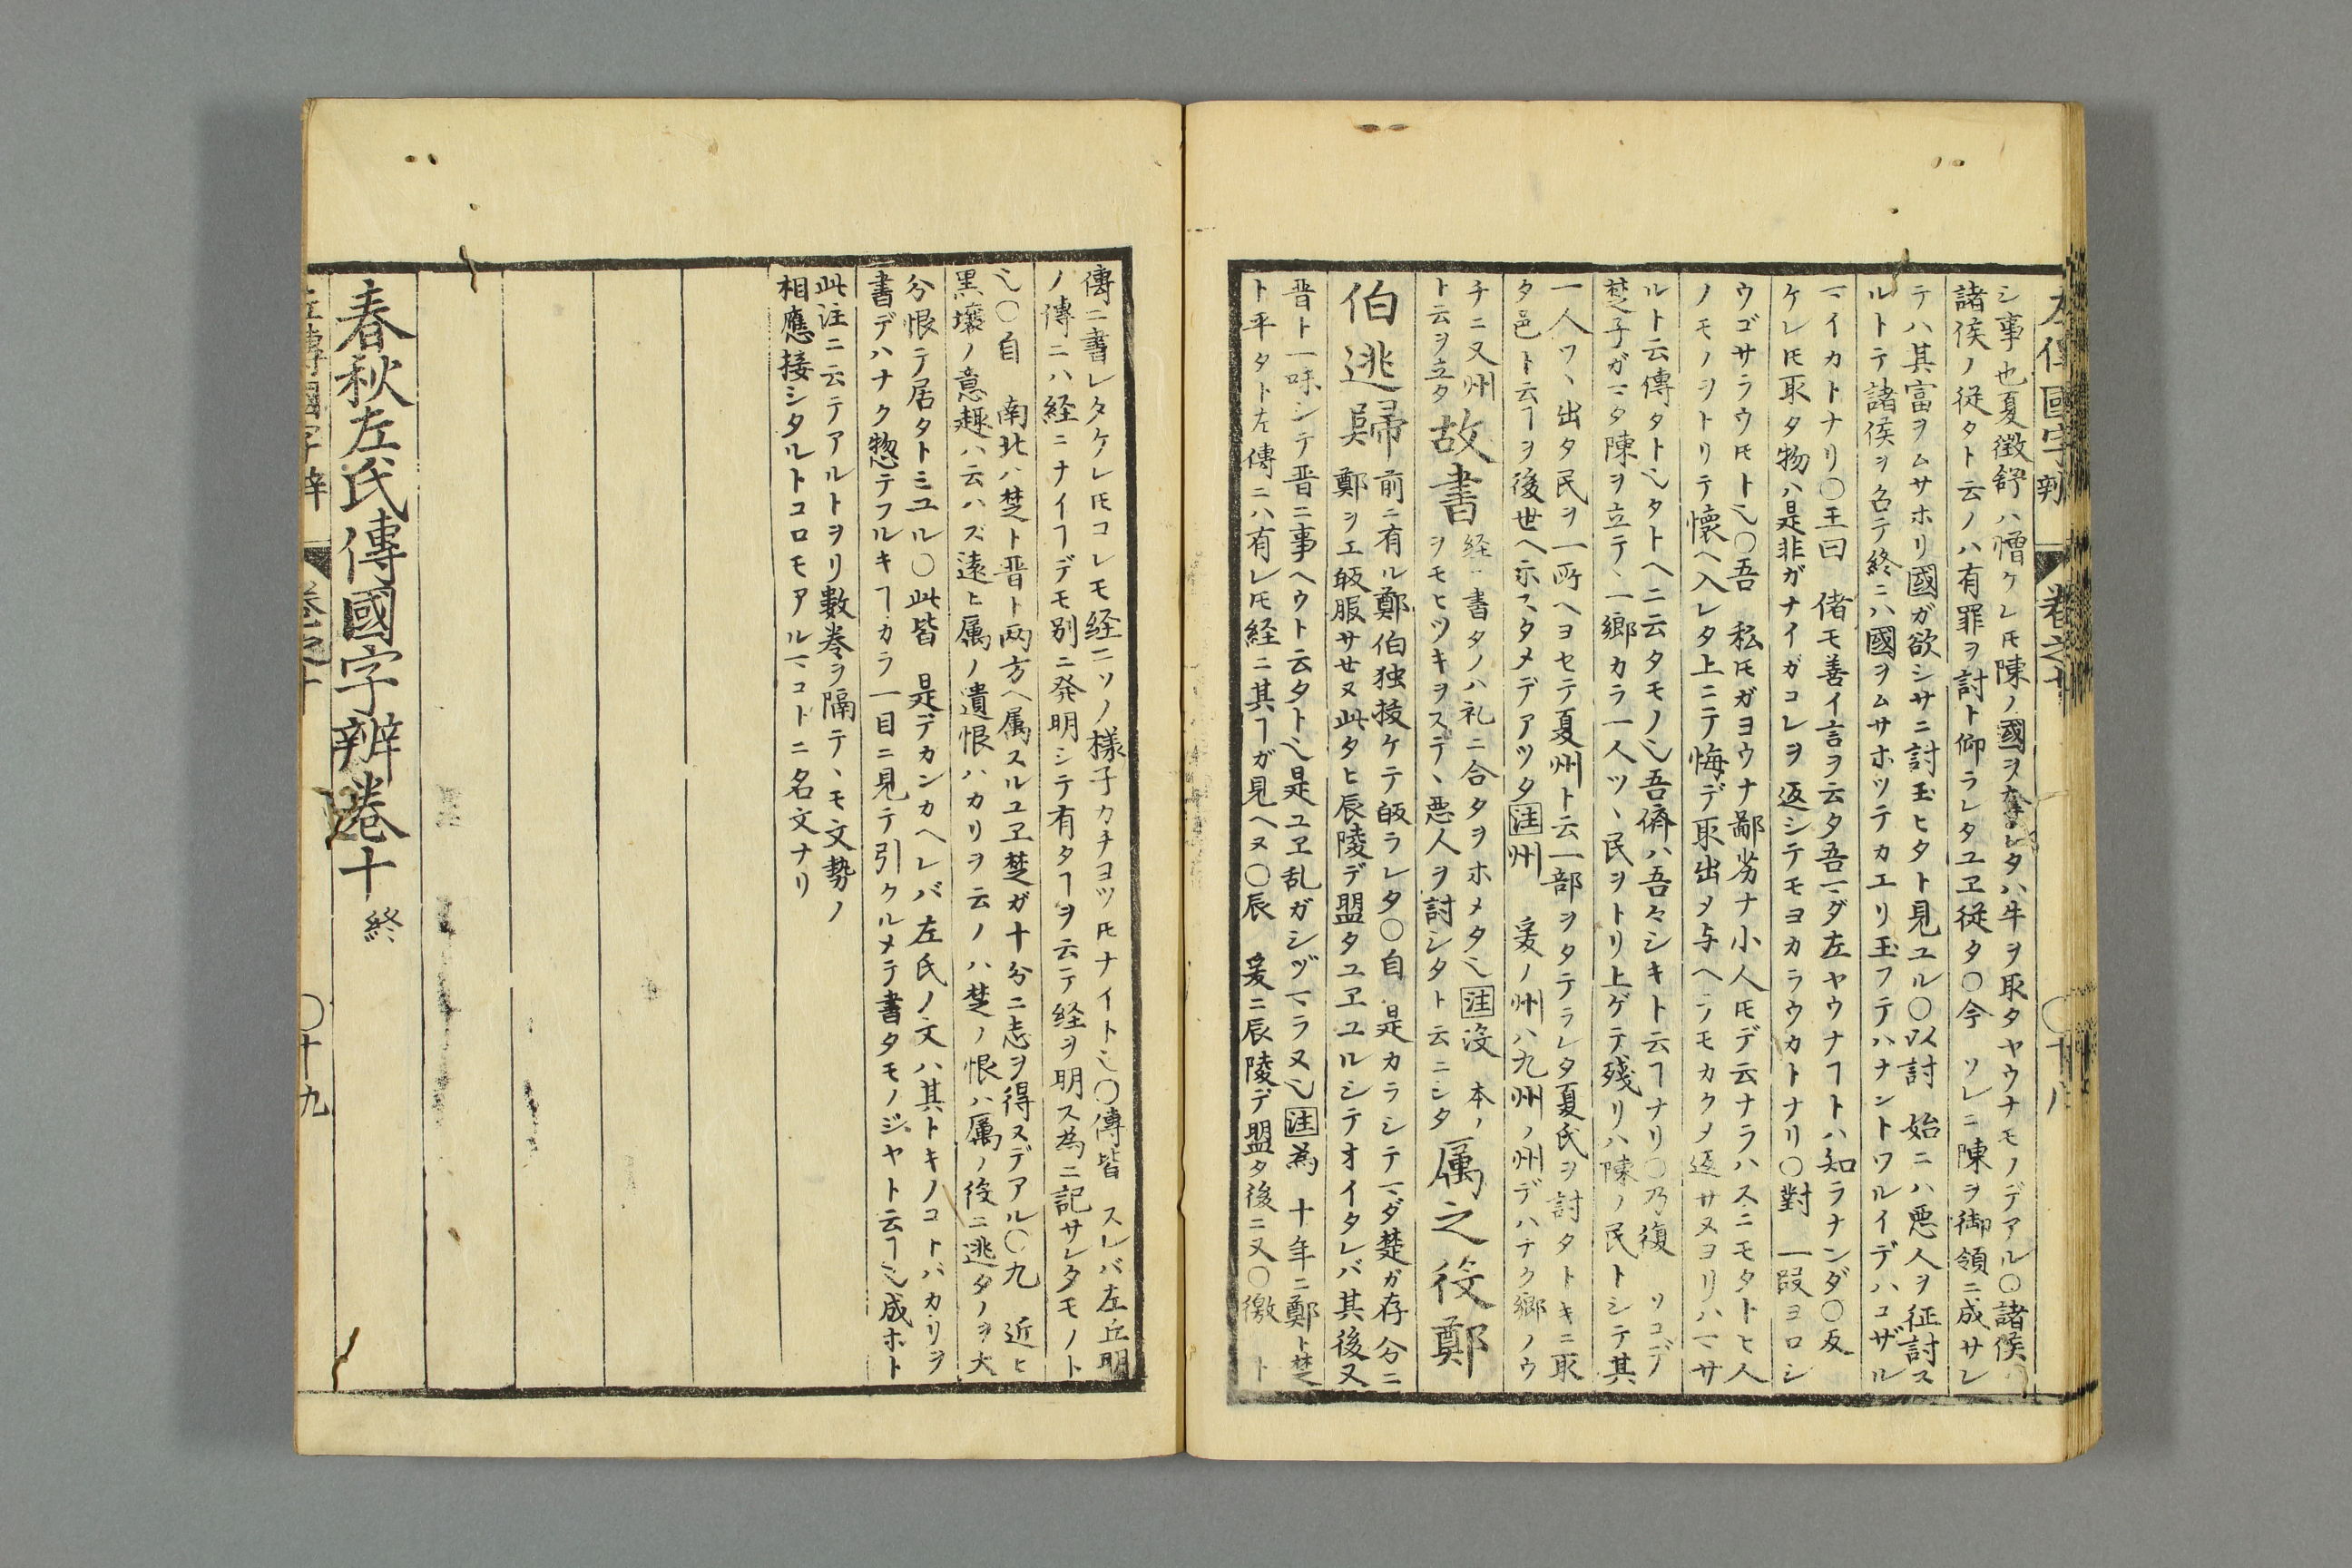 左傳國字辨 卷之十 〇十八
シ事也夏徴舒ハ憎ケレ𪜈陳ノ國ヲ奪レタハ牛ヲ取タヤウナモノデアル〇諸侯
諸侯ノ従タト云ノハ有罪ヲ討ト仰ラレタユヱ従タ〇今 ソレニ陳ヲ御領ニ成サレ
テハ其富ヲムサホリ國ガ欲シサニ討玉ヒタト見ユル〇以討 始ニハ悪人ヲ征討ス
ルトテ諸侯ヲ名テ終ニハ國ヲムサホツテカエリ玉フテハナントワルイデハコザル
マイカトナリ〇王曰 偖モ善イ言ヲ云タ吾マダ左ヤウナヿトハ知ラナンダ〇反
ケレ𪜈取タ物ハ是非ガナイガコレヲ返シテモヨカラウカトナリ〇對 一段ヨロシ
ウゴサラウ𪜈ト〇吾 私𪜈ガヨウナ鄙劣ナ小人𪜈デ云ナラハスニモタトヒ人
ノモノヲトリテ懐ヘ入レタ上ニテ悔デ取出メ与ヘラモカクメ返サヌヨリハマサ
ルト云傳タト〆タトヘニ云タモノ〆吾儕ハ吾々シキト云ヿナリ〇乃復 ソコデ
楚子ガマタ陳ヲ立テヽ一郷カラ一人ツヽ民ヲトリ上ゲテ残リハ陳ノ民トシテ其
一人ツヽ出タ民ヲ一所ヘヨセテ夏州ト云一部ヲタテラレタ夏氏ヲ討タトキニ取
タ邑ト云ヿヲ後世ヘ示スタメデアツタ 注州 爰ノ州ハ九州ノ州デハナク郷ノウ
チニ又州
ト云ヲ立タ
故書
経ニ書タノハ礼ニ合タヲホメタ〆 注没 本ノ
ヲモヒツキヲステヽ悪人ヲ討シタト云ニシタ
厲之役鄭
伯逃歸
前ニ有ル鄭伯独抜ケテ皈ラレタ〇自 是カラシテマダ楚ガ存分ニ
鄭ヲエ皈服サセヌ此タヒ辰陵デ盟タユヱユルシテオイタレバ其後又
晋ト一味シテ晋ニ事ヘウト云タト〆是ユヱ乱ガシヅマラヌ〆 注為 十年ニ鄭ト楚
ト平タト左傳ニハ有レ𪜈経ニ其ヿガ見ヘヌ〇辰 爰ニ辰陵デ盟タ後ニ又〇徼 ト
傳ニ書レタケレ𪜈コレモ経ニソノ様子カチヨツ𪜈ナイト〆〇傳皆 スレバ左丘明
ノ傳ニハ経ニナイヿデモ別ニ発明シテ有タヿヲ云テ経ヲ明ス為ニ記サレタモノト
〆〇自 南北ハ楚ト晋ト兩方ヘ属スルユヱ楚ガ十分ニ志ヲ得ヌデアル〇九 近ヒ
黒壌ノ意趣ハ云ハズ遠ヒ厲ノ遺恨ハカリヲ云ノハ楚ノ恨ハ厲ノ役ニ逃タノヲ大
分恨テ居タトミユル〇此皆 是デカンカヘレバ左氏ノ文ハ其トキノコトバカリヲ
書デハナク惣テフルキヿカラ一目ニ見テ引クルメテ書タモノジヤト云ヿ〆成ホト
此注ニ云テアルトヲリ數巻ヲ隔テヽモ文勢ノ
相應接シタルトコロモアルマコトニ名文ナリ
春秋左氏傳國字辨卷十終
左傳國字辨 卷之十 〇十九